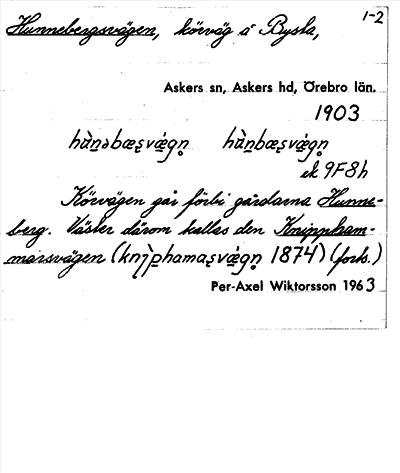 1-2
Hunnebergsvägen, körväg å Bysla,
Askers sn, Askers hd, Örebro län.
1903
hùn̲əbæʂvǽgn̥ hùn̲bæʂvǽgn̥
ek 9F8h
Körvägen går förbi gårdarna Hunne-
berg. Väster därom kallas den Knippham-
marsvägen (knìp̲hamaʂvǽgn̥ 1874) (forts.)
Per-Axel Wiktorsson 1963